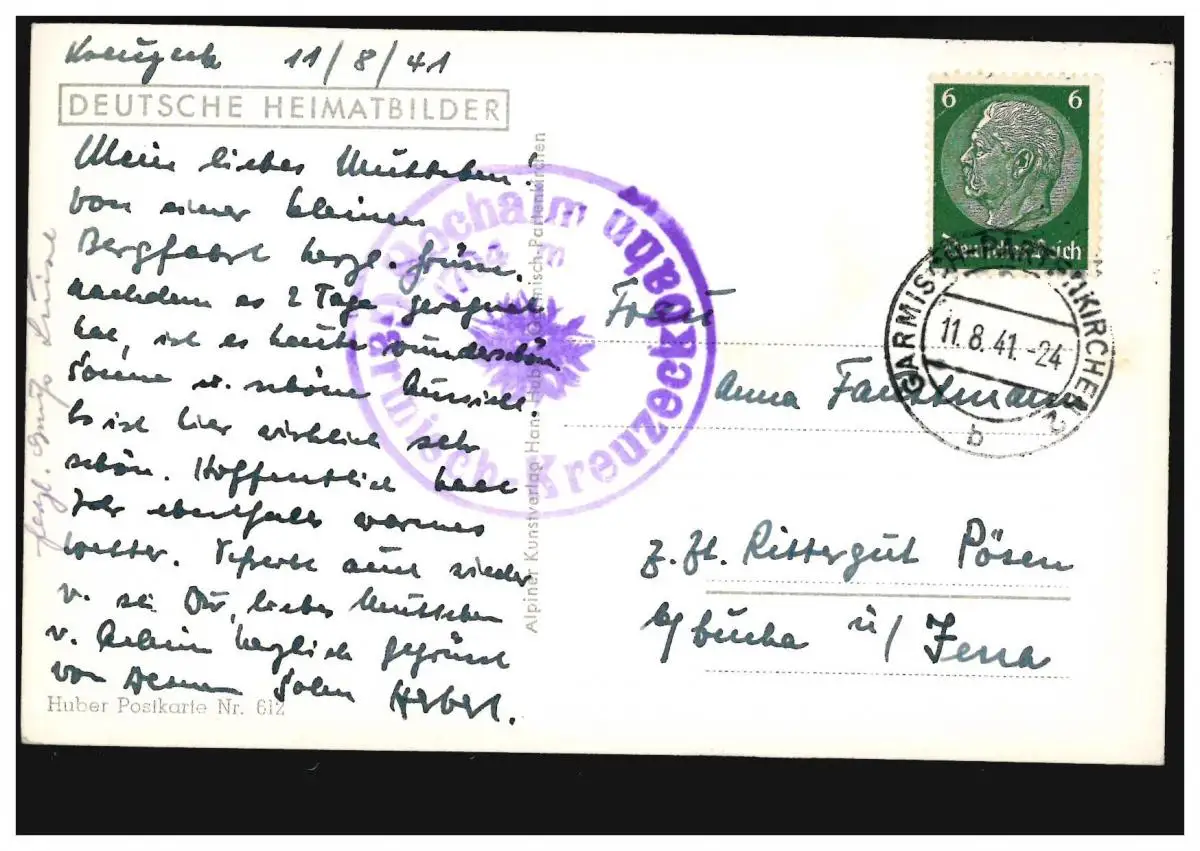 Kreuzeck 11/8/41
DEUTSCHE HEIMATBILDER
Mein liebes Muttchen!
Von einer kleinen
Bergfahrt herzl. Grüsse.
nachdem es 2 Tage geregnet
hat, ist es heute wunderschön,
Sonne u. schöne Aussicht.
Es ist hier wirklich sehr
schön. Hoffentlich habt
Ihr ebenfalls warmes
Wetter. Schreibe auch wieder
u. sei Du, liebes Muttchen
u. herzlich gegrüsst
von Deinem Sohn Herbert.
Huber Postkarte Nr. 612
herzl. Luise
Alpiner Kunstverlag Hans Huber, Garmisch-Partenkirchen
Hochalm
1704 m
Garmisch-Kreuzeck
Kreuzeckbahn
6 6
Deutsches Reich
GARMISCH-PARTENKIRCHEN 2
11.8.41.-24
b
Frau
Anna Faustmann
z. Zt. Rittergut Pösen
b/ Bucha ü/ Jena